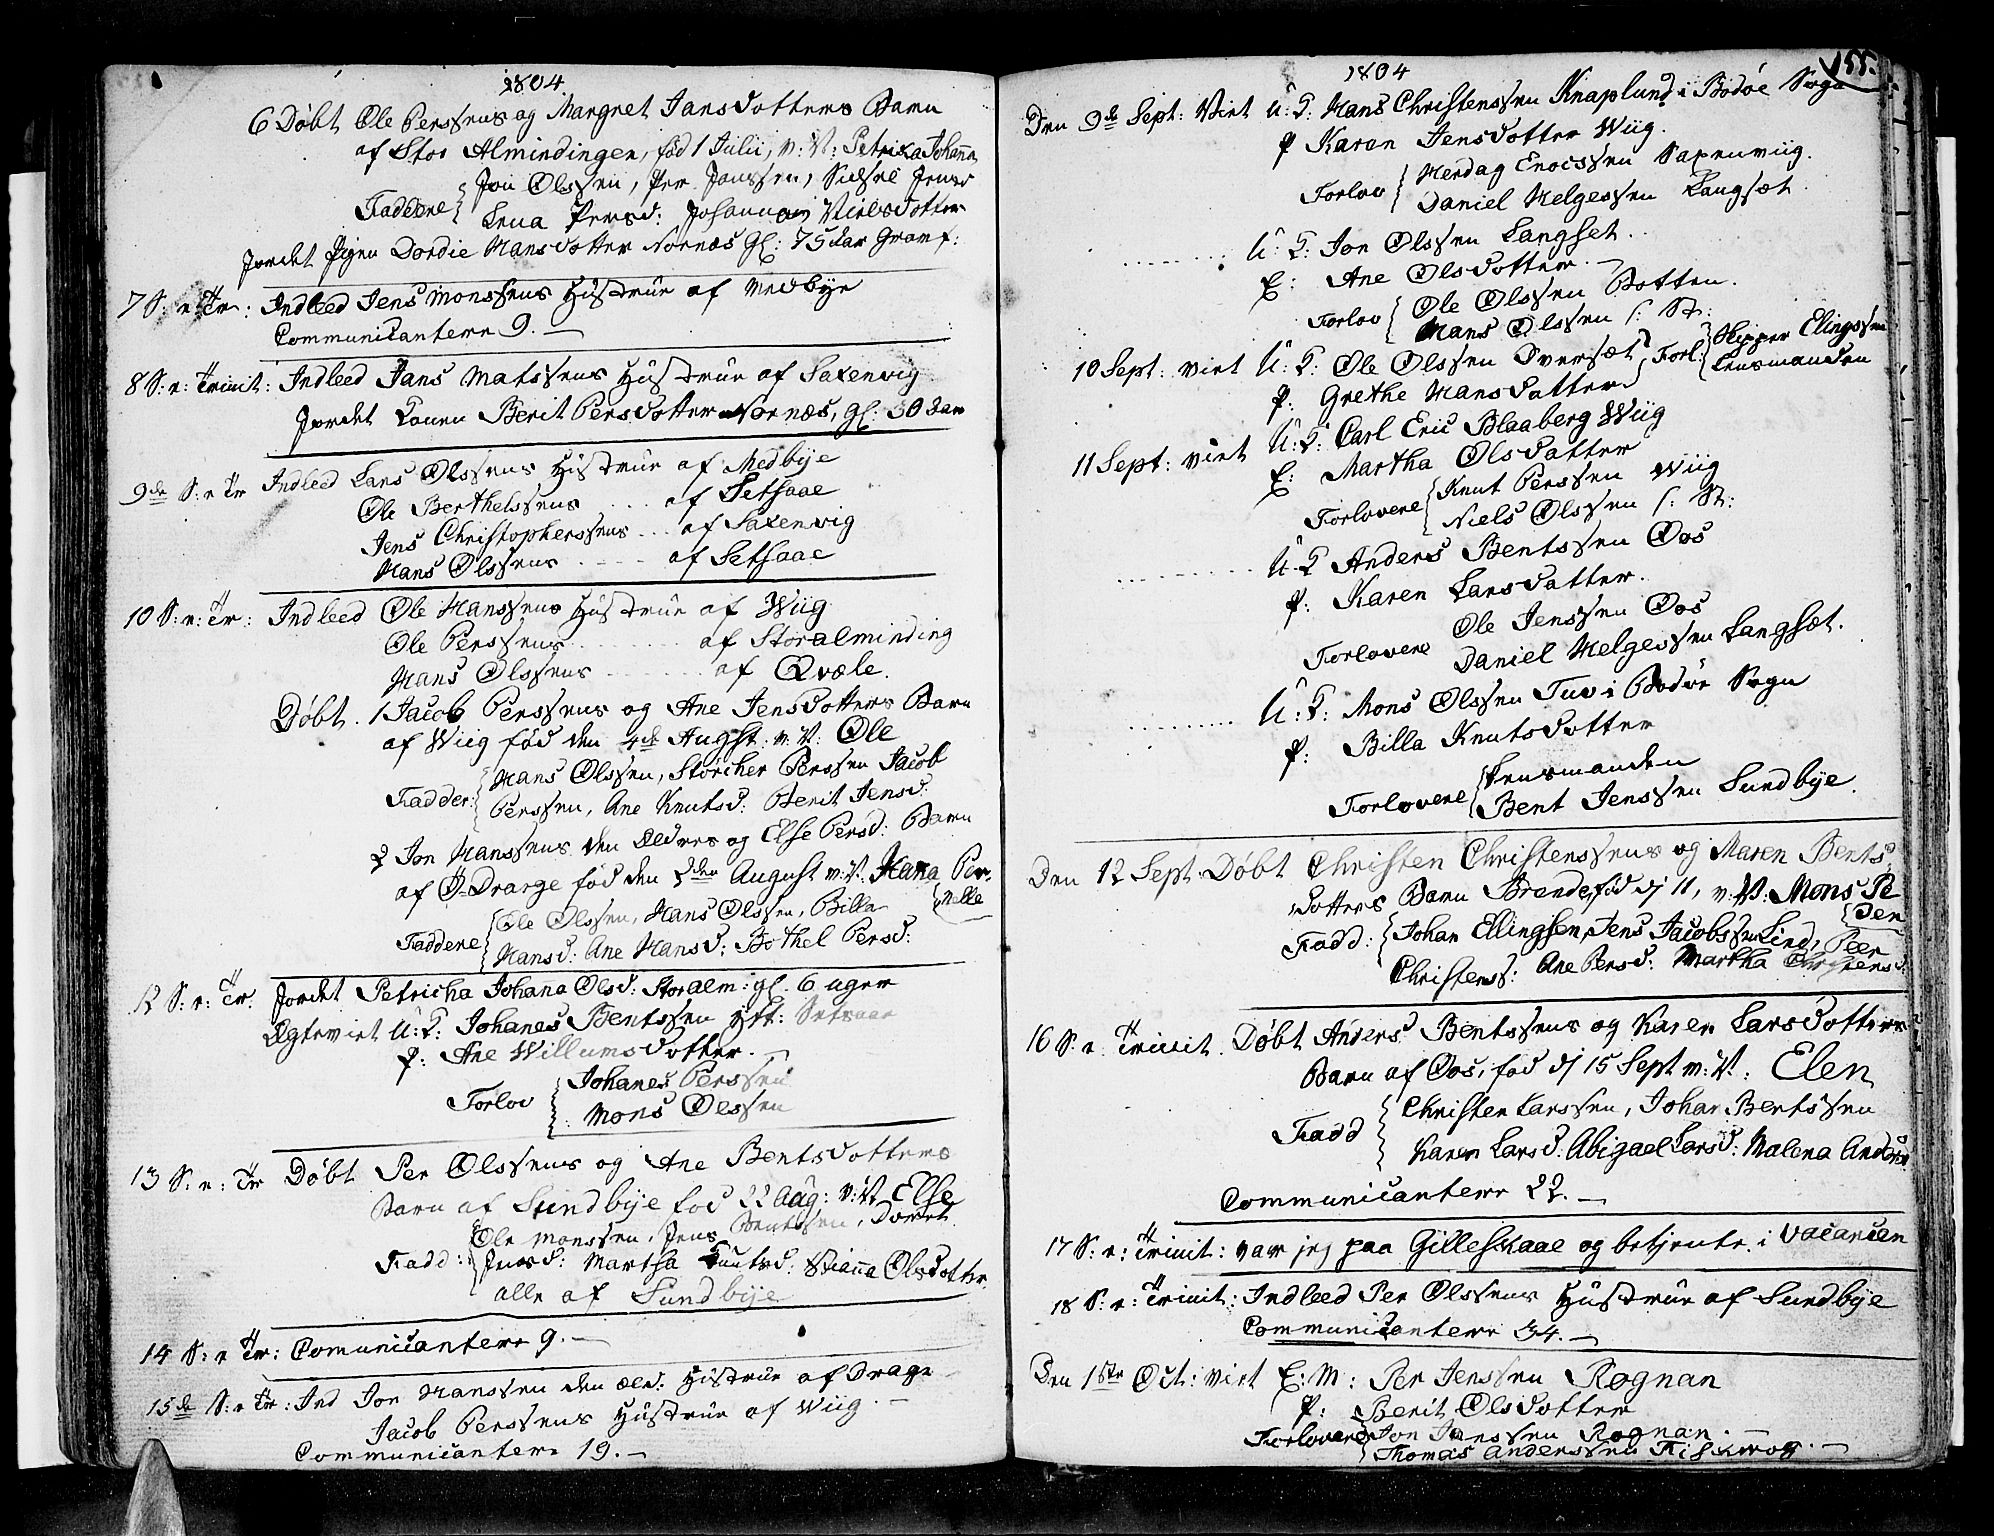 1804
6 Døbt Ole Perssens og Margret Jansdotters Barn
af Stor Almindingen, fød 1 Julii, v: N: Petrika Johanna
Faddere Jon Olssen, Per Janssen, Sidsel Jensd
Lena Persd: Johanna Nielsdotter
Jordet Pigen Dordie Hansdotter Nornæs gl: 75 Aar Gramf:
7 S: e: Tr: Indleed Jens Monssens Hustrue af Medbye
Communicantere 9. —
8 S: e: Trinit: Indleed Jans Matssens Hustrue af Saxenvig
Jordet Konen Berit Persdotter Nornæs, gl: 30 Aar
9de S: e Tr Indleed Lars Olssens Hustrue af Medbye
Ole Berthelssens ..... af Setsaae
Jens Christopherssens ... af Saxenvig
Hans Olssens ..... af Setsaae
10 S: e: Tr: Indleed Ole Hanssens Hustrue af Wiig
Ole Perssens ....... af Storalminding
Hans Olssens ....... af Qvæle.
Døbt. 1 Jacob Perssens og Ane Jensdotters Barn
af Wiig fød den 4de Augst: v: N: Ole
Fadder: Hans Olssen, Størcher Perssen Jacob
Perssen, Ane Knutsd: Berit Jensd:
2 Jon Hanssens den Ældres og Else Persd: Barn
af Drage fød den 5den August v: N: Hana Per-
nelle
Faddere Ole Olssen, Hans Olssen, Billa
Hansd: Ane Hansd: Bothel Persd:
12 S: e: Tr: Jordet Petricha Johana Olsd: Storalm: gl. 6 uger
Ægteviet U: K: Johanes Bentssen Setsaae
P: Ane Willumsdotter. —
Forlov Johanes Perssen
Mons Olssen
13 S: e: Tr Døbt Per Olssens og Ane Bentsdotters
Barn af Sundbye fød 22 Aug: v: N Else
Ole Monssen, Jens Bentssen, Dorret
Fadd: Jensd: Martha Knutsd: Olsdotter
alle af Sundbye
14 S: e Tr: Comunicantere 9. —
15de S: e Tr: Ind Jon Hanssen den æld: Hustrue af Drage
Jacob Perssens Hustrue af Wiig. —
Communicantere 19. —
1804
155.
Den 9de Sept: Viet U: K: Hans Christenssen Knaplund i Bodøe Sogn
P Karen Jensdotter Wiig.
Forlov Herdag Enocssen Saxenviig.
Daniel Helgessen Langsæt.
.......... U: K: Jon Olssen Langset.
E: Ane Olsdotter. —
Forlov Ole Olssen Botten.
Hans Olssen St:
10 Sept: viet U: K: Ole Olssen Oversæt Forl: Skipper Elingssen
P: Grethe Hansdatter Lensmanden
11 Sept: viet U: K: Carl Eric Blaaberg Wiig
E: Martha Olsdatter
Forlovere Knut Perssen Wiig
Niels Olssen St:
.......... U: K Anders Bentssen Oos
P: Karen Larsdatter.
Ole Jenssen Oos
Forlovere Daniel Helgessen Langsæt.
.......... U: K: Mons Olssen Tuv i Bodøe Sogn
P: Billa Knutsdotter
Lensmanden
Forlovere Bent Jenssen Sundbye.
Den 12 Sept: Døbt Christen Christenssens og Maren Bents-
dotters Barn fød dj 11, v: N: Mons Pe
der
Fadd: Johan Ellingsen, Jens Jacobssen Lind, Peer
Christenss: Ane Persd: Martha Christensd:
16 S: e: Trinit. Døbt Anders Bentssens og Karen Larsdotters
Barn af Oos, fød dj 15 Sept v: N: Elen
Christen Larssen, Johan Bentssen
Fadd Karen Larsd: Abigael Larsd: Malena Andersd
Communicantere 22. —
17 S: e: Trinit: var jeg paa Gilleskaae og betjente i Vacancen
18 S: e: Trinit: Indleed Per Olssens Hustrue af Sundbye
Communicantere 34. —
Den 1ste Oct: viet E: M: Per Jenssen Rognan
P: Berit Olsdotter
Forlovere Jon Janssen Rognan. —
Thomas Anderssen Fiskvog. —